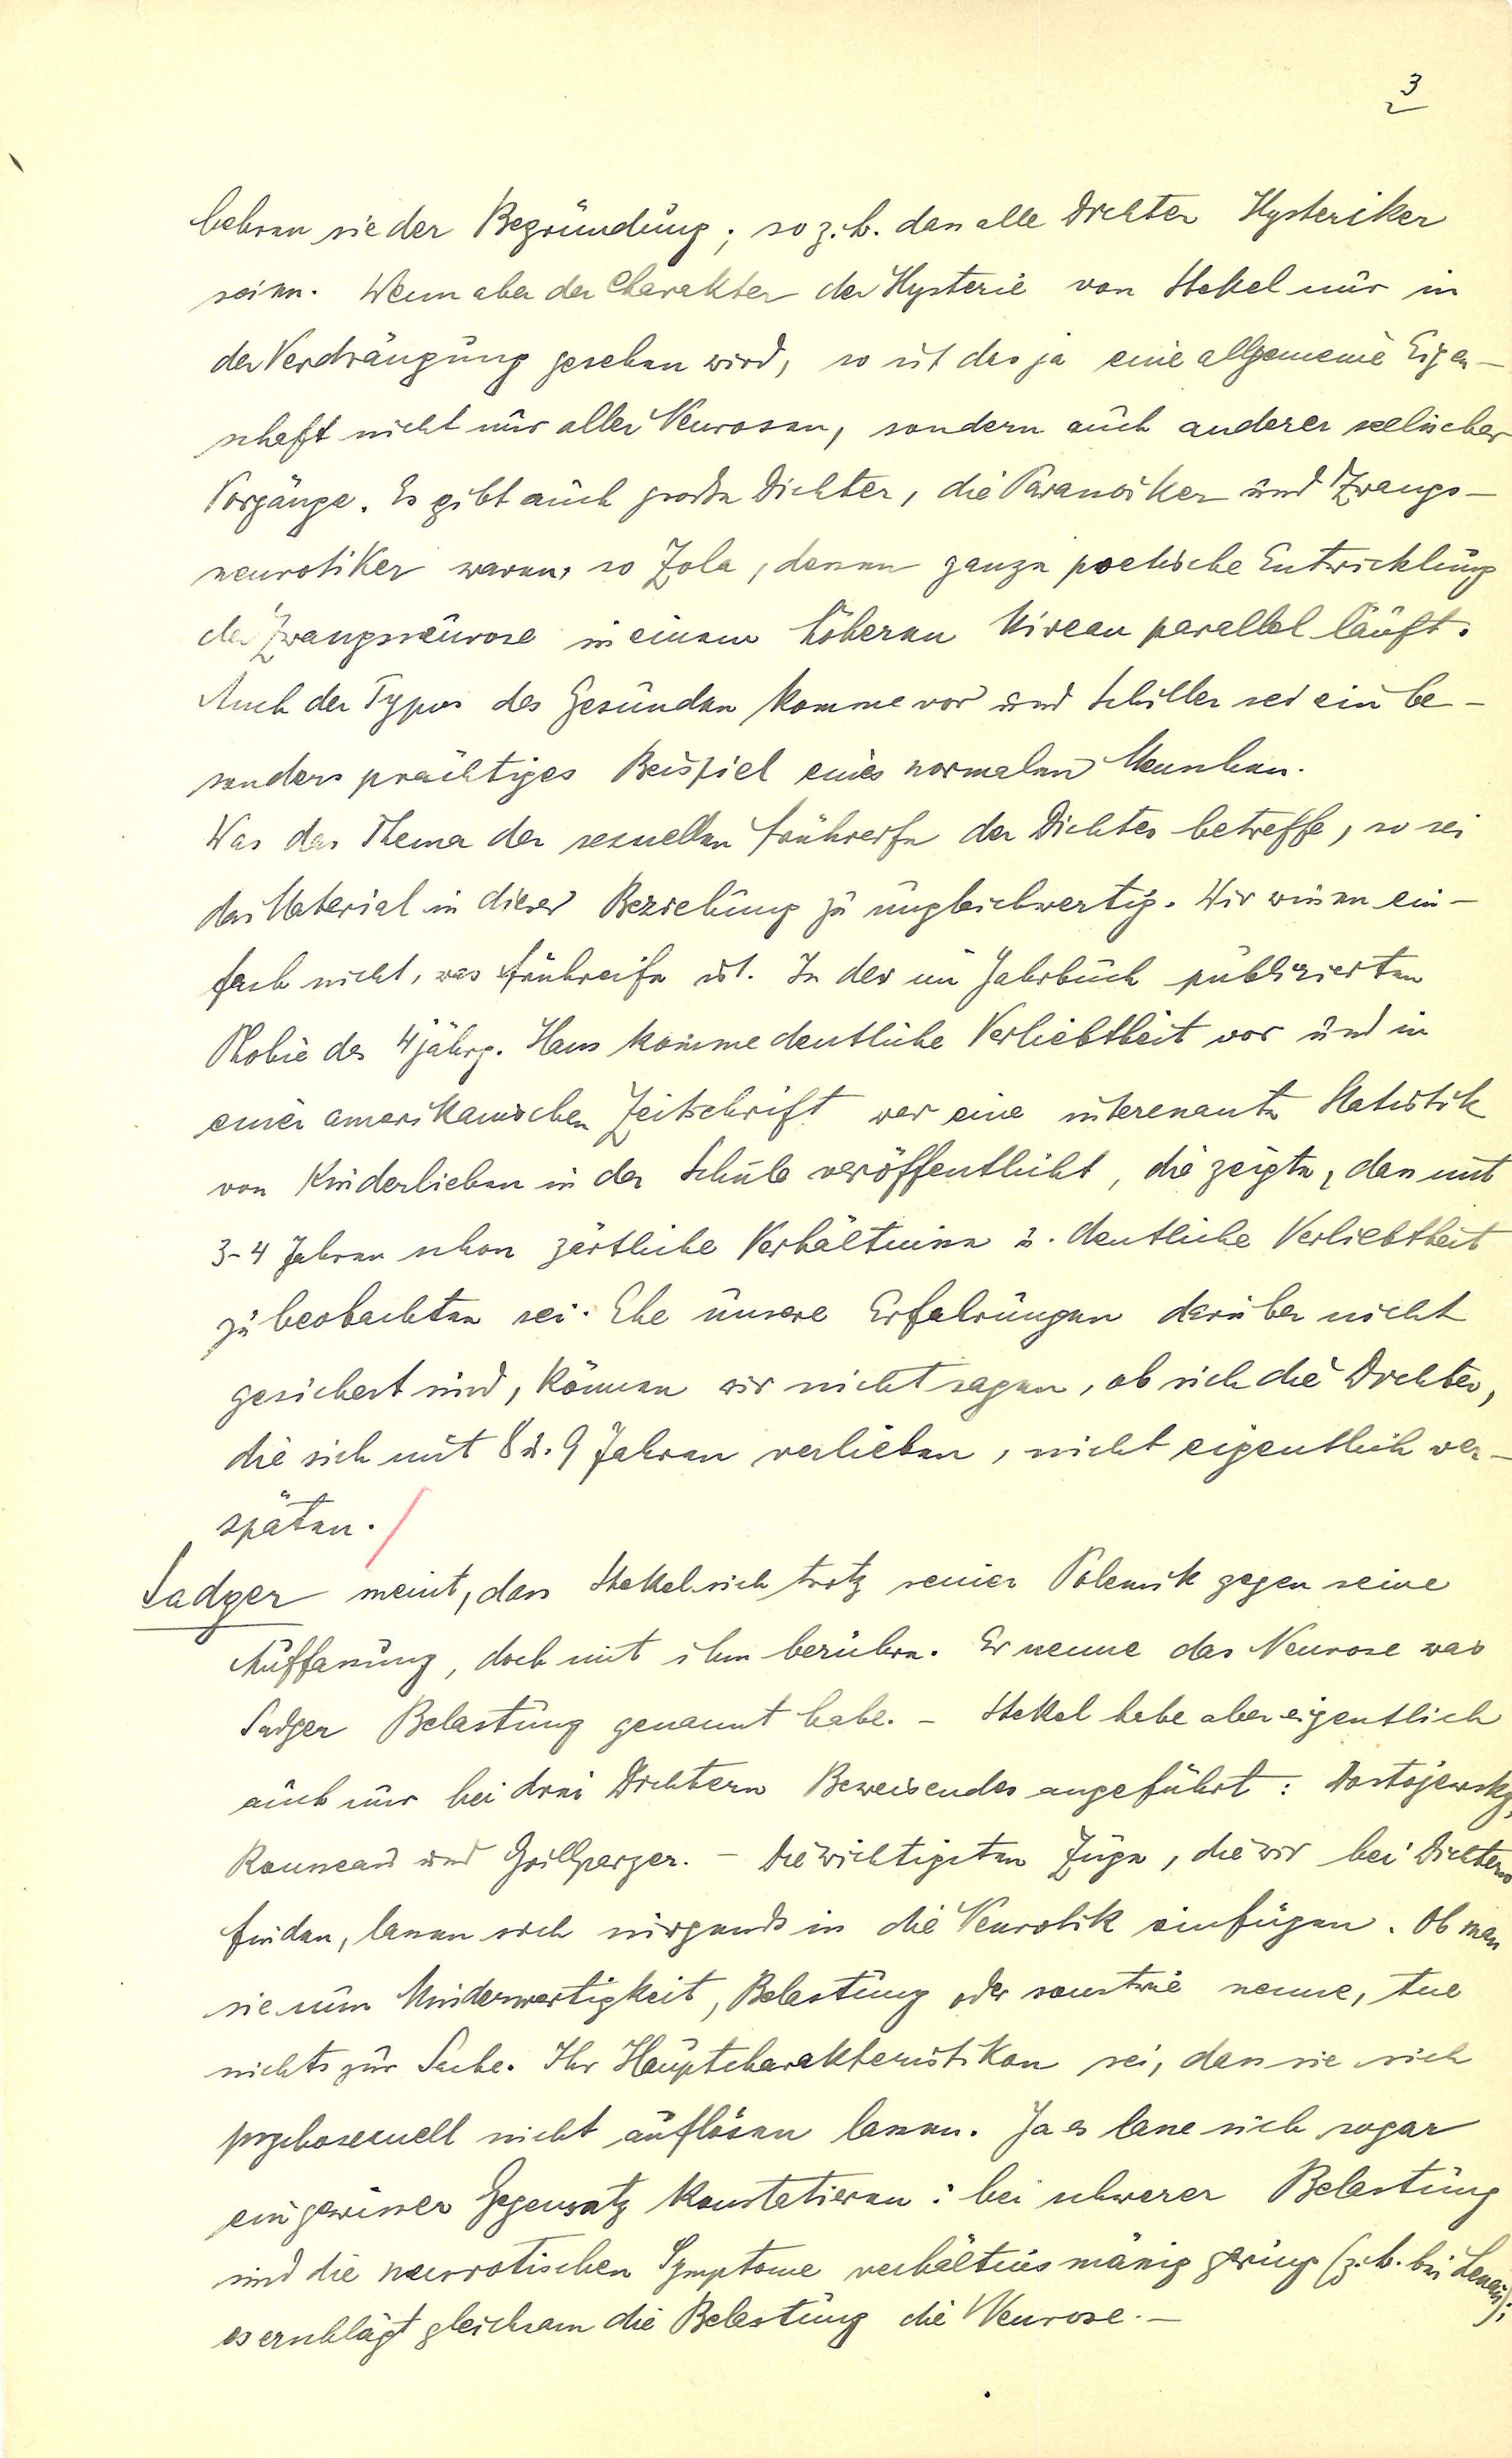 3
behren sie der Begründung; so z. b. dass alle Dichter Hysteriker
seien. Wenn aber der Charakter der Hysterie von Stekel nur in
der Verdrängung gesehen wird, so ist das ja eine allgemeine Eigen-
schaft nicht nur aller Neurosen, sondern auch anderer seelischer
Vorgänge. Es gibt auch grosse Dichter, die Paranoiker und Zwangs-
neurotiker waren, so Zola, dessen ganze poetische Entwicklung
der Zwangsneurose in einem höheren Niveau parallel läuft.
Auch der Typus des Gesunden komme vor und Schiller sei ein be-
sonders prächtiges Beispiel eines normalen Menschen.
Was das Thema der sexuellen Frühreife der Dichter betreffe, so sei
das Material in dieser Beziehung zu ungleichwertig. Wir wissen ein-
fach nicht, was Frühreife ist. In der im Jahrbuch publizierten
Phobie des 4jährg. Hans komme deutliche Verliebtheit vor und in
einer amerikanischen Zeitschrift war eine interessante Statistik
von Kinderlieben in der Schule veröffentlicht, die zeigte, dass mit
3-4 Jahren schon zärtliche Verhältnisse u. deutliche Verliebtheit
zu beobachten sei. Ehe unsere Erfahrungen darüber nicht
gesichert sind, können wir nicht sagen, ob sich die Dichter,
die sich mit 8 u. 9 Jahren verlieben, nicht eigentlich ver-
späten.
Sadger meint, dass Stekel sich trotz seiner Polemik gegen seine
Auffassung, doch mit ihm berühre. Er nenne das Neurose was
Sadger Belastung genannt habe. - Stekel habe aber eigentlich
auch nur bei drei Dichtern Beweisendes angeführt: Dostojewsky,
Rousseau und Grillparzer. - Die wichtigsten Züge, die wir bei Dichtern
finden, lassen sich nirgends in die Neurotik einfügen. Ob man
sie nun Minderwertigkeit, Belastung oder sonstwie nenne, tue
nichts zur Sache. Ihr Hauptcharakteristikon sei, dass sie sich
psychosexuell nicht auflösen lassen. Ja es lasse sich sogar
ein gewisser Gegensatz konstatieren: bei schwerer Belastung
sind die neurotischen Symptome verhältnismässig gering (z. b. bei Lenau);
es erschlägt gleichsam die Belastung die Neurose. -